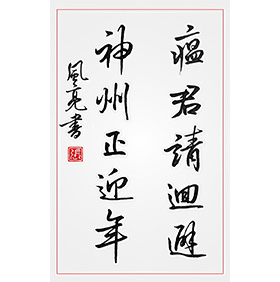 瘟君請迴避
神州正迎年
風亮書